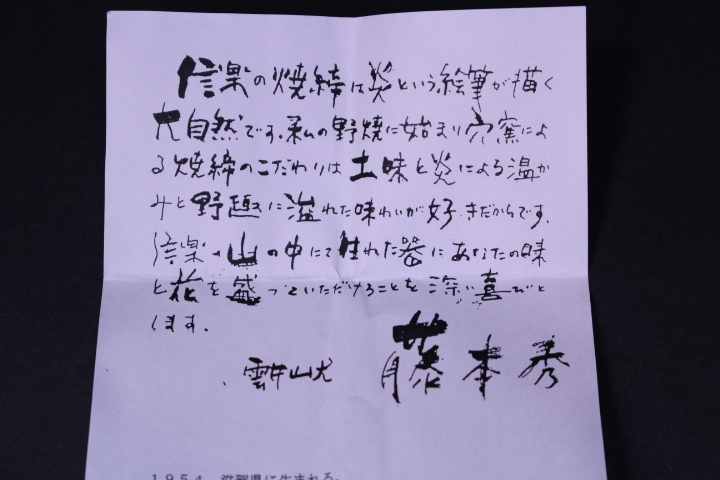 信楽の焼締は炎という絵筆が描く
大自然です。私の野焼に始まり穴窯によ
る焼締のこだわりは土味と炎による温か
みと野趣に溢れた味わいが好きだからです。
信楽の山の中にて生れた器にあなたの味
と花を盛っていただけることを深い喜びと
します。
雲井山犬 藤本秀
1954 滋賀県に生まれる。